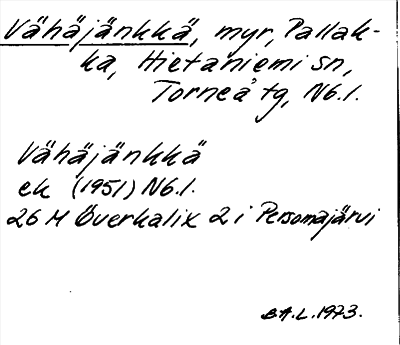 Vähäjänkkä, myr, Pallak-
ka, Hietaniemi sn,
Torneå tg, Nb.l.
Vähäjänkkä
ek (1951) Nb.l.
26 M Överkalix 2 i Personajärvi
B.A.L. 1973.